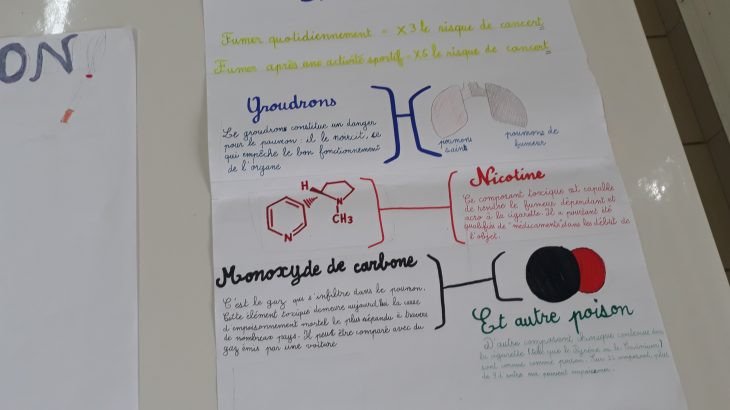 ON!
Fumer quotidiennement = X3 le risque de cancert
Fumer après une activité sportif = X5 le risque de cancert
Groudrons
Le groudrons constitue un danger
pour le poumon : il le noircit, se
qui empêche le bon fonctionnement
de l'organe
poumons
saint
poumons de
fumeur
H
N
CH3
N
Nicotine
Ce composant toxique est capable
de rendre le fumeur dépendant et
acro à la cigarette. Il a pourtant été
qualifiés de "médicaments" dans les début de
l'objet.
Monoxyde de carbone
C'est le gaz qui s'infiltre dans le poumon.
Cette élément toxique demeure aujourd'hui la cause
d'empoisonnement mortel le plus répandu à travers
de nombreux pays. Il peut être comparé avec du
gaz émis par une voiture
Et autre poison
D'autre composant chimique contenue dans
la cigarette (tel que le ou le
sont connus comme poison. Sur